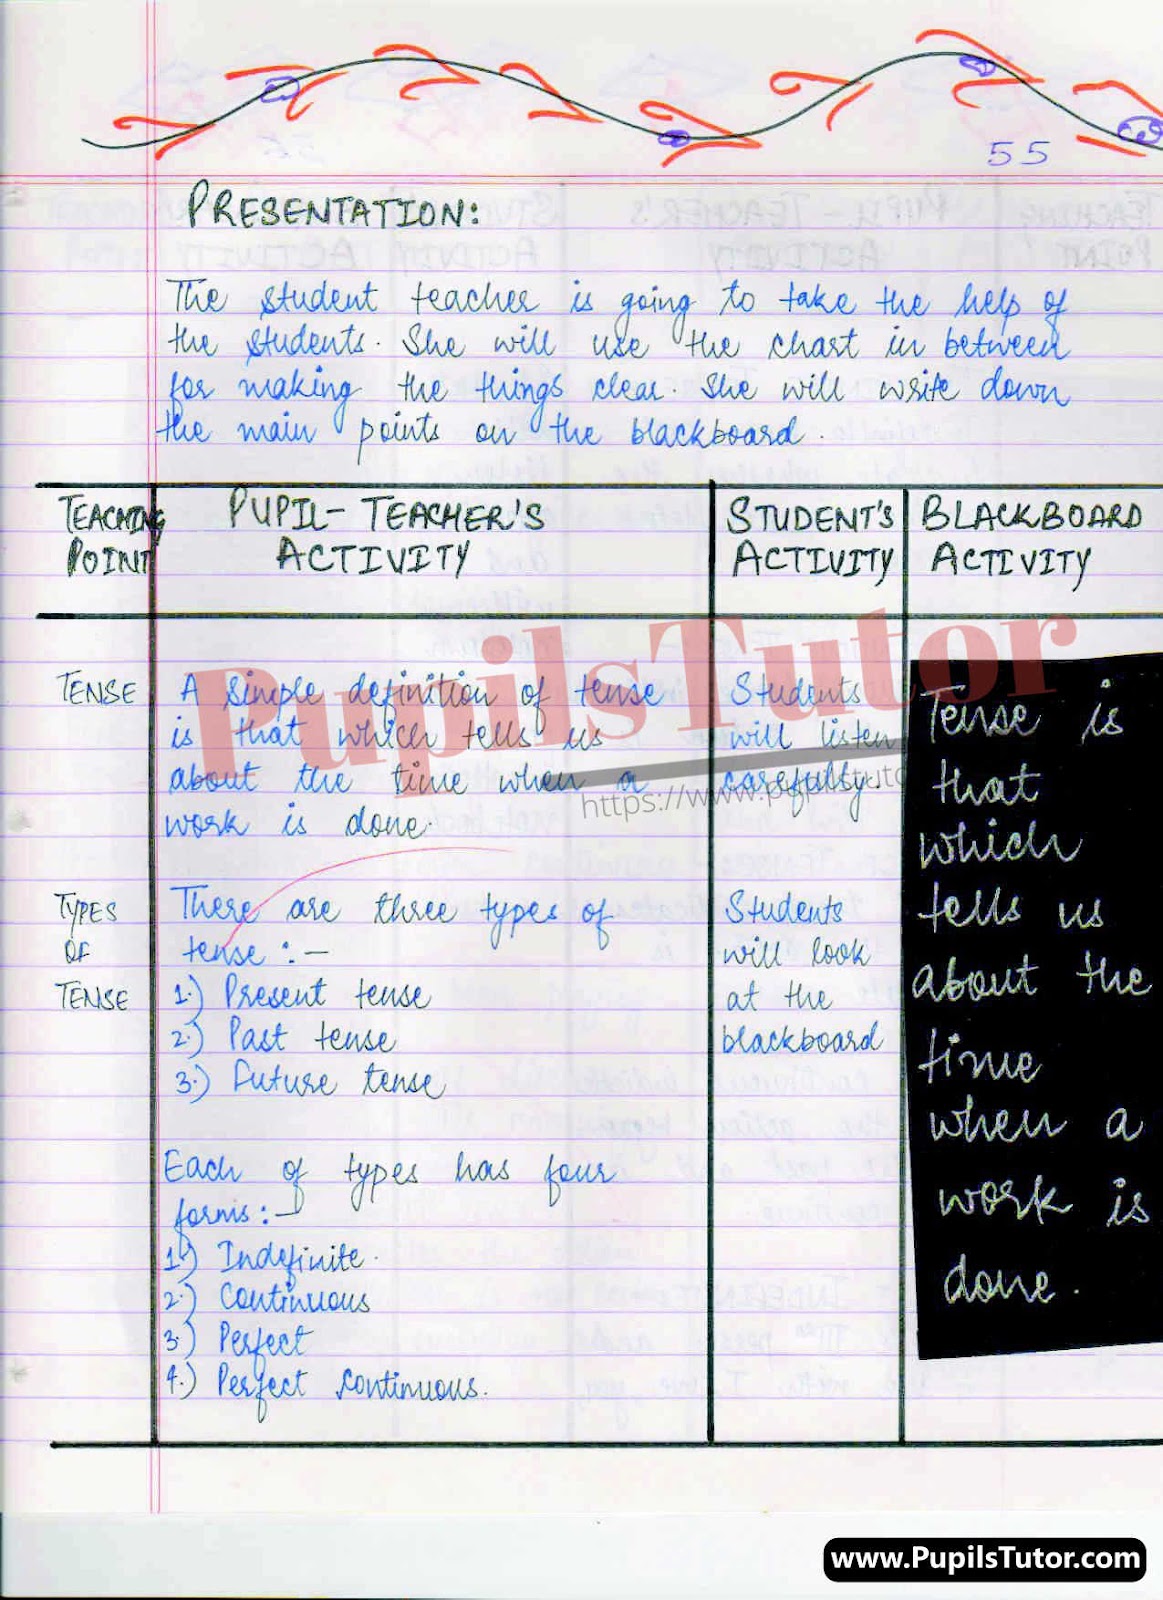 55
PRESENTATION:
The student teacher is going to take the help of
the students. She will use the chart in between
for making the things clear. She will write down
the main points on the blackboard.
TEACHING
POINT
PUPIL-TEACHER'S
ACTIVITY
STUDENT'S
ACTIVITY
BLACKBOARD
ACTIVITY
TENSE
A simple definition of tense
is that which tells us
about the time when a
work is done.
Students
will listen
carefully.
Tense is
that
which
tells us
about the
time
when a
work is
done.
TYPES
OF
TENSE
There are three types of
tense :-
1.) Present tense
2.) Past tense
3.) Future tense
Students
will look
at the
blackboard
Each of types has four
forms:-
1.) Indefinite.
2.) Continuous
3.) Perfect
4.) Perfect continuous.
PupilsTutor
https://www.pupilstutor
www.PupilsTutor.com